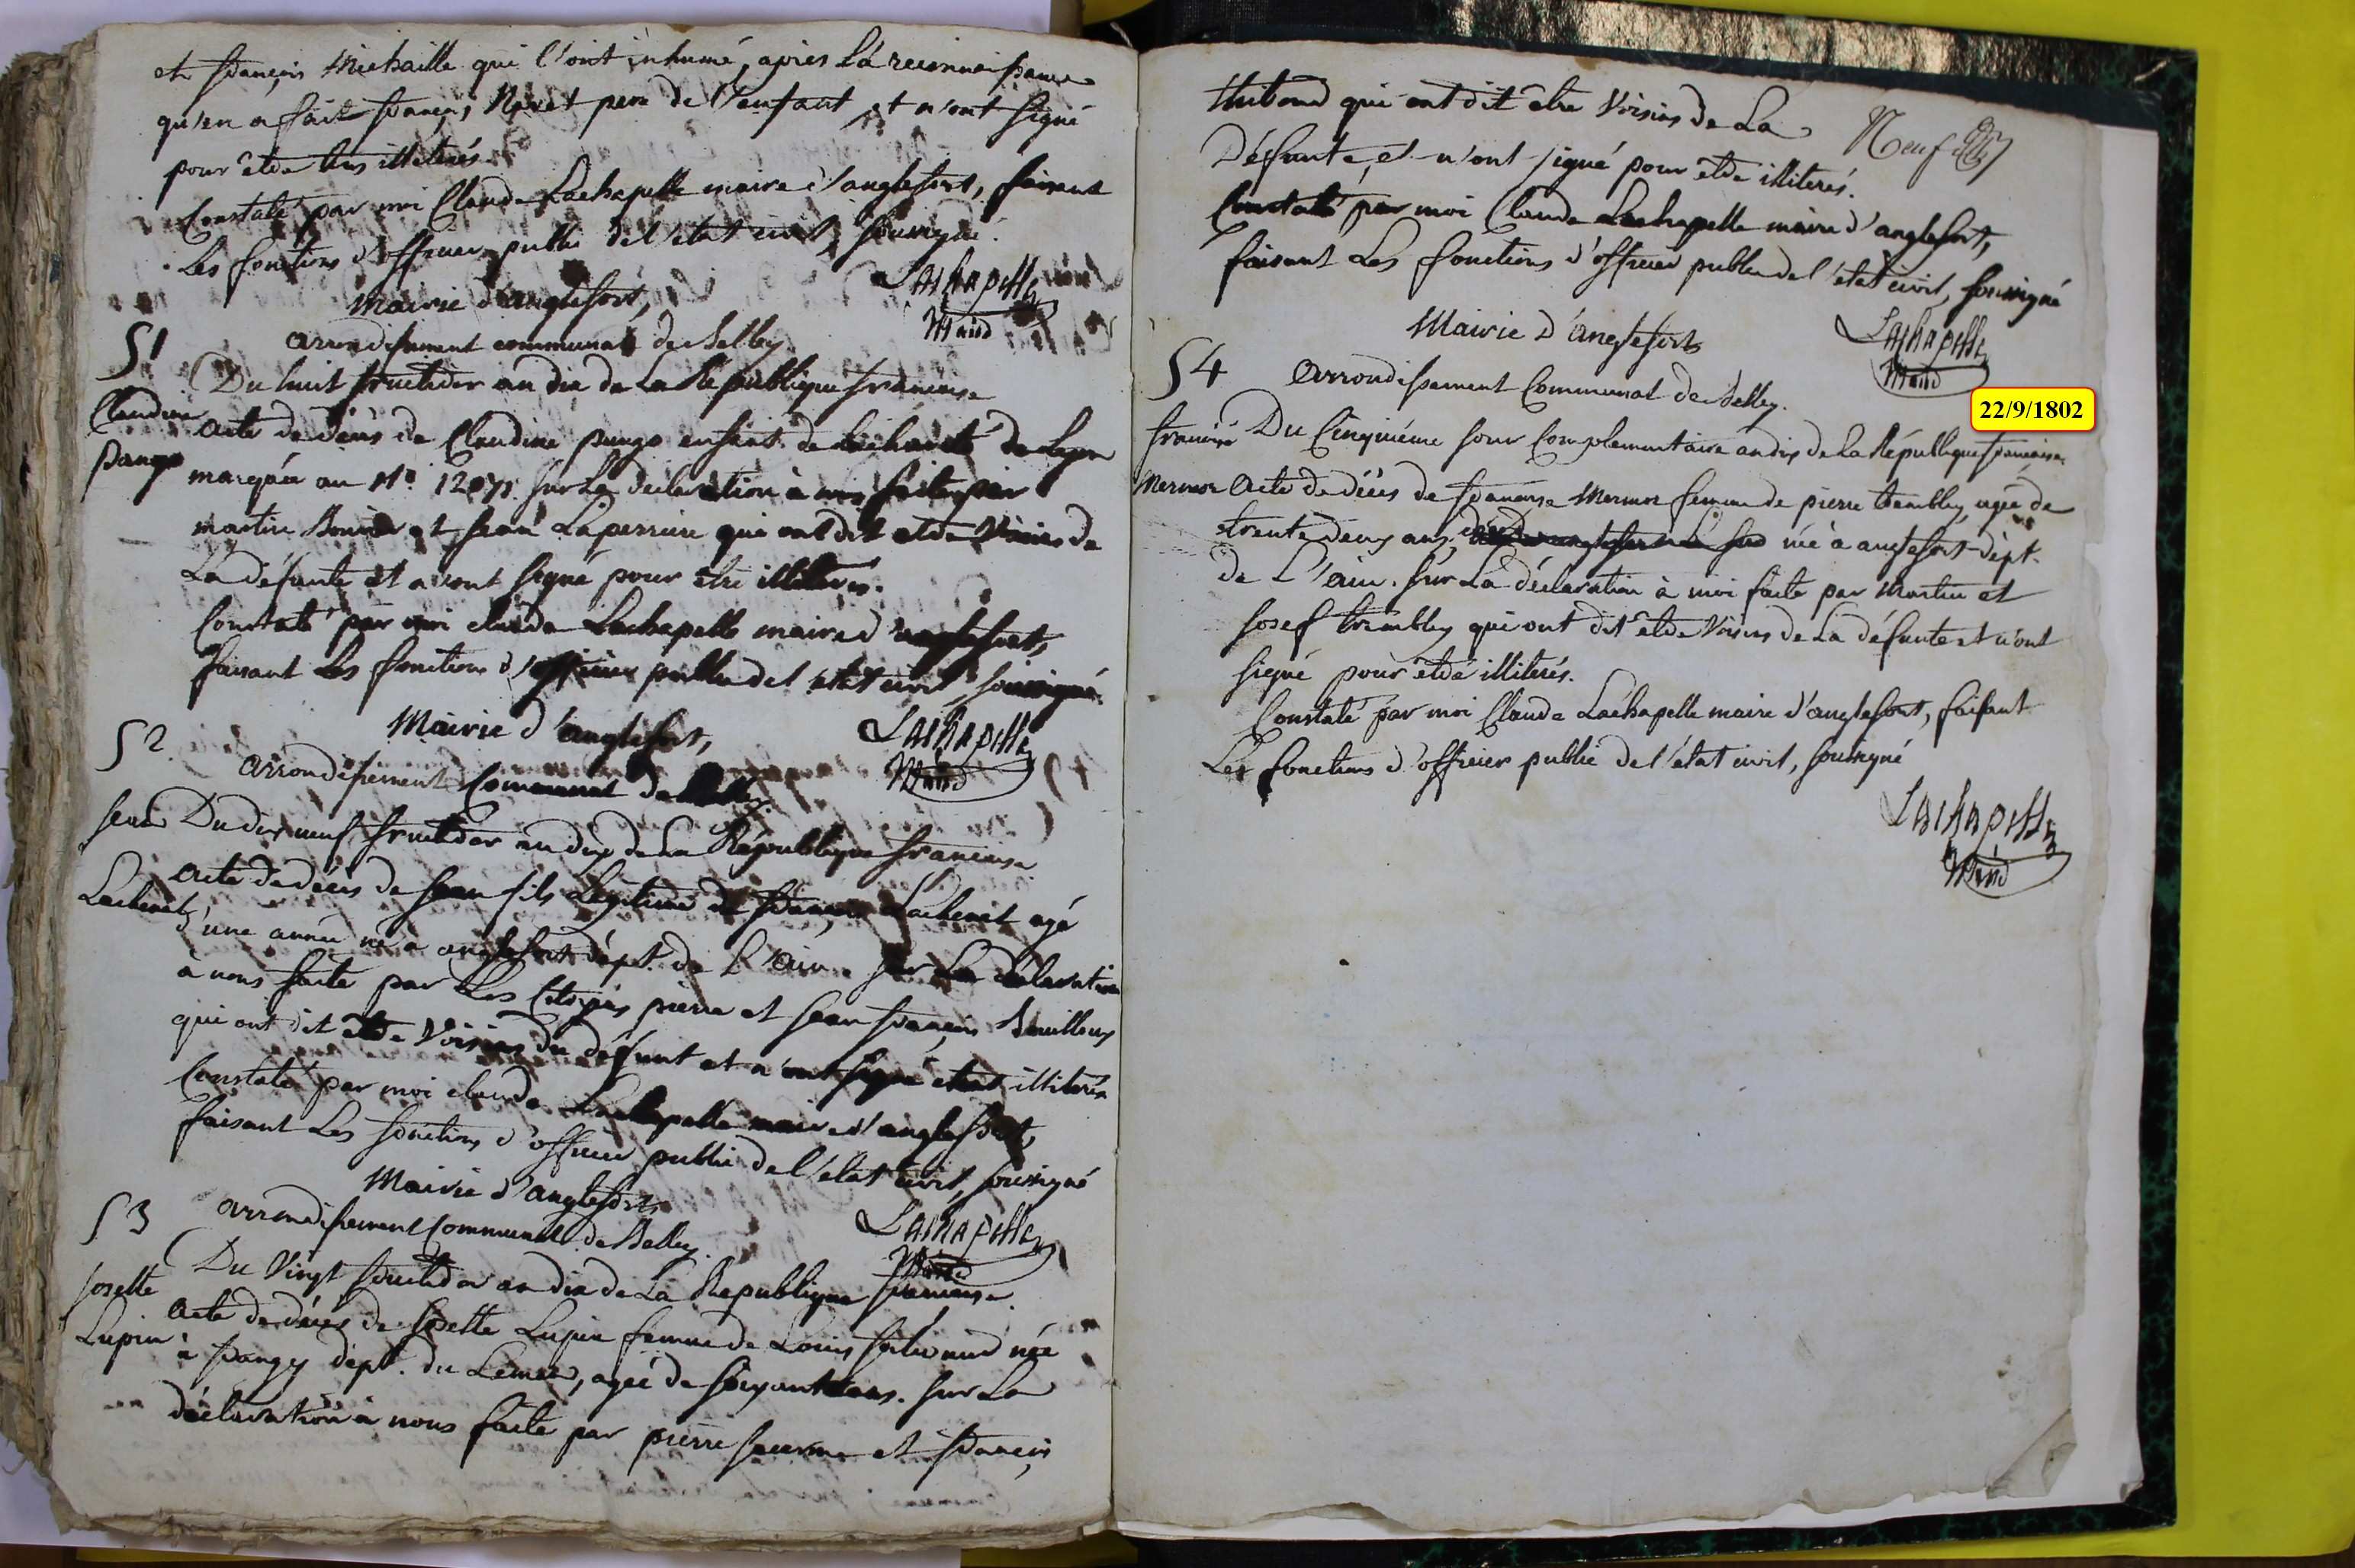 et françois Michaille qui l'ont inhumé, après la reconnoissance
qu'en a fait françois Revet pere de l'enfant et n'ont signé
pour être tous illiterés.
Constaté par moi Claude Lachapelle maire d'anglefort, faisant
Les fonctions d'officier public de l'état civil, soussigné.
Lachapelle
Maire
Mairie d'anglefort,
arrondissement communal de Belley
51
Du huit fructidor an dix de La République francaise
Claudine
pango
acte de décès de Claudine pango enfant de La charité de Lyon
marquée au N°. sur La declaration à nous faite par
martin et Jean Laperriere qui ont dit etre Voisins de
La défunte et n'ont signé pour être illiterés.
Constaté par moi claude Lachapelle maire d'anglefort,
faisant Les fonctions d'officier public de l'etat civil, soussigné.
Lachapelle
Maire
Mairie d'anglefort,
52
arrondissement Communal de Belley.
Jean
Lachenet
Du dix neuf fructidor an dix de La République francaise
Acte de décès de Jean fils Légitime de françois Lachenet agé
d'une année né a anglefort dépt. de L'ain. Sur La déclaration
à nous faite par Les Citoyens pierre et Jean françois Bouilloux
qui ont dit etre Voisins du défunt et n'ont signé etant illiterés
Constaté par moi claude Lachapelle maire d'anglefort,
faisant Les fonctions d'officier public de l'état civil, soussigné
Mairie d'anglefort
Lachapelle
Maire
53
arrondissement Communal de Belley.
Josette
Lupin
Du Vingt fructidor an dix de La Republique francaise.
Acte de décès de Josette Lupin femme de Louis née
à frangy dépt. du Leman, agée de soixante ans. Sur La
déclaration à nous faite par pierre et françois
thibond qui ont dit être Voisins de La
Neuf
Défunte, et n'ont signé pour être illiterés.
Constaté par moi Claude Lachapelle maire d'anglefort,
faisant Les fonctions d'officier public de l'état civil, soussigné
Lachapelle
Maire
Mairie d'anglefort
54
arrondissement Communal de Belley.
22/9/1802
francoise
Mermoz
Du Cinquième Jour Complementaire an dix de la République francaise
Acte de décès de francoise Mermoz femme de pierre trembley, agée de
trente deux ans, née à anglefort dépt.
de L'ain. Sur La déclaration à moi faite par Martin et
Josef trembley qui ont dit être Voisins de La défunte et n'ont
signé pour être illiterés.
Constaté par moi Claude Lachapelle maire d'anglefort, faisant
Les fonctions d'officier public de l'état civil, soussigné
Lachapelle
Maire